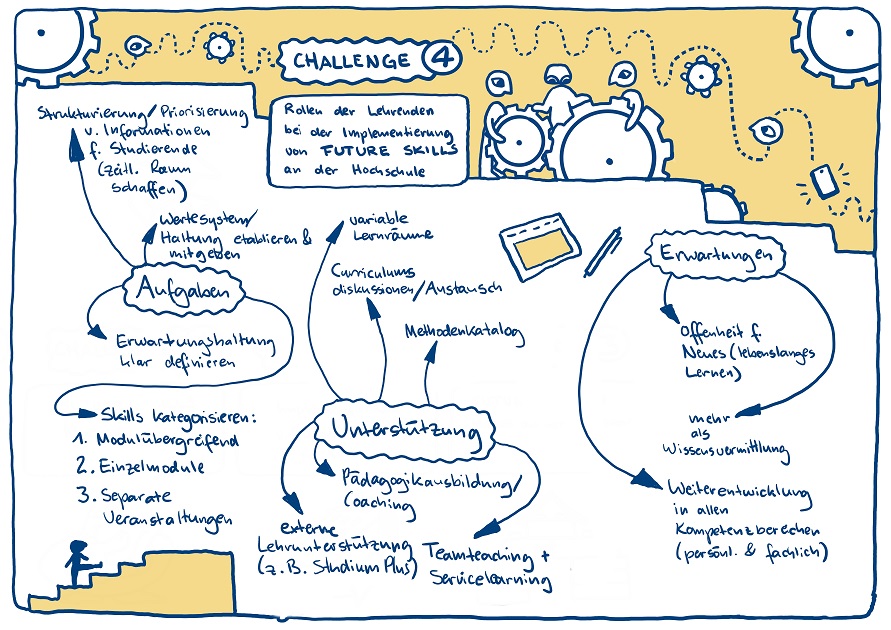 CHALLENGE 4
Rollen der Lehrenden
bei der Implementierung
von FUTURE SKILLS
an der Hochschule
Strukturierung/Priorisierung
v. Informationen
f. Studierende
(zeitl. Raum
schaffen)
Wertesystem/
Haltung etablieren &
mitgeben
Aufgaben
Erwartungshaltung
klar definieren
Skills kategorisieren:
1. Modulübergreifend
2. Einzelmodule
3. Separate
Veranstaltungen
variable
Lernräume
Curriculums
diskussionen/Austausch
Methodenkatalog
Unterstützung
Pädagogikausbildung/
Coaching
externe
Lehrunterstützung
(z.B. Studium Plus)
Teamteaching +
Servicelearning
Erwartungen
Offenheit f.
Neues (lebenslanges
Lernen)
mehr
als
Wissensvermittlung
Weiterentwicklung
in allen
Kompetenzbereichen
(persönl. & fachlich)